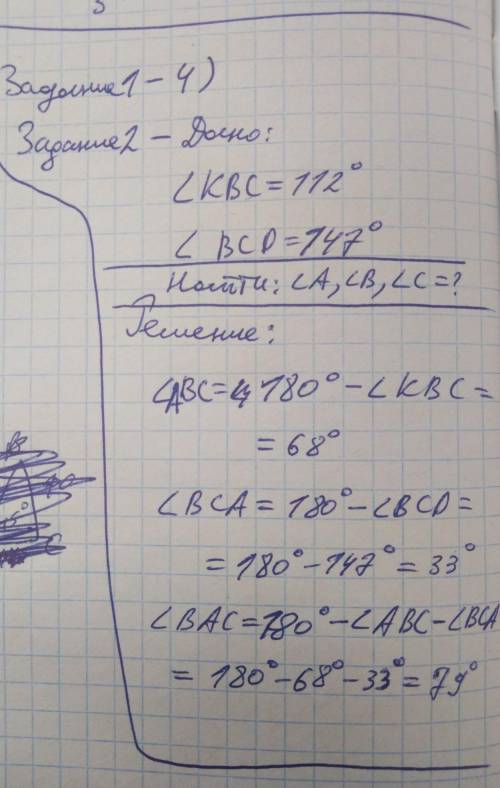 Задание1 - 4)
Задание2 - Дано:
∠KBC = 112°
∠BCD = 147°
Найти: ∠A, ∠B, ∠C = ?
Решение:
∠ABC = 180° - ∠KBC =
= 68°
∠BCA = 180° - ∠BCD =
= 180° - 147° = 33°
∠BAC = 180° - ∠ABC - ∠BCA
= 180° - 68° - 33° = 79°